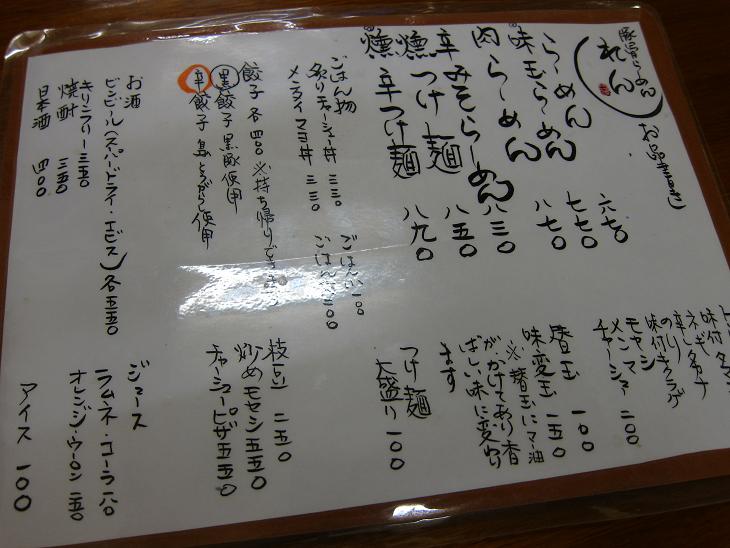 豚骨らーめん
れん
お品書き
らーめん 六七〇
味玉らーめん 七七〇
肉らーめん 八七〇
辛みそらーめん 八三〇
燻つけ麺 八五〇
燻辛つけ麺 八九〇
ごはん物
炙りチャーシュー丼 三三〇
メンタイマヨ丼 三三〇
ごはん小 一〇〇
餃子 各四〇〇 ※持ち帰り
黒餃子 黒豚使用
辛餃子 島とうがらし使用
お酒
ビンビール(スーパードライ・エビス) 各五五〇
キリンフリー 三五〇
焼酎 三五〇
日本酒 四〇〇
ネギ
辛タカナ
のり
味付キクラゲ
モヤシ
メンマ
チャーシュー 二〇〇
替玉 一〇〇
味変玉 一五〇
※替玉にマー油
がかけてあり香
ばしい味に変わり
ます
つけ麺
大盛り 一〇〇
枝豆 二五〇
炒めモヤシ 五五〇
チャーシューピザ 五五〇
ジュース
ラムネ・コーラ 一八〇
オレンジ・ウーロン 二五〇
アイス 一〇〇